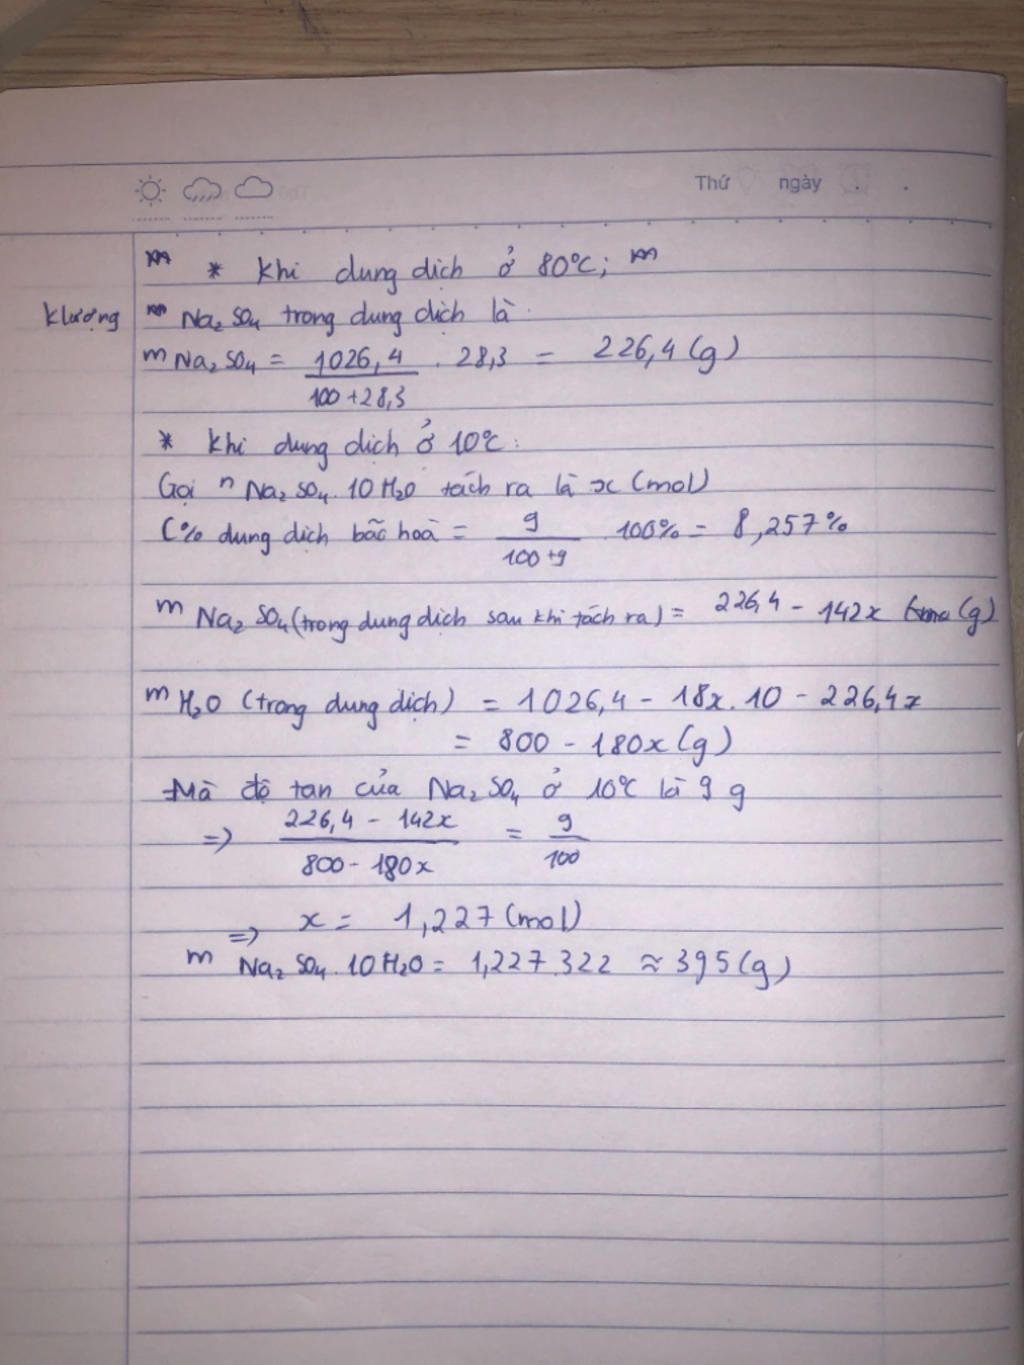 Thứ ngày . .
* Khi dung dịch ở 80°C;
klượng Na₂SO₄ trong dung dịch là
m Na₂SO₄ = 1026,4 / 100+28,3 . 28,3 = 226,4 (g)
* Khi dung dịch ở 10°C:
Gọi n Na₂SO₄.10H₂O tách ra là x (mol)
C% dung dịch bão hoà = 9 / 100+9 . 100% = 8,257%
m Na₂SO₄ (trong dung dịch sau khi tách ra) = 226,4 - 142x (g)
m H₂O (trong dung dịch) = 1026,4 - 18x.10 - 226,4
= 800 - 180x (g)
Mà độ tan của Na₂SO₄ ở 10°C là 9 g
=> 226,4 - 142x / 800 - 180x = 9 / 100
=> x = 1,227 (mol)
m Na₂SO₄.10H₂O = 1,227.322 ≈ 395 (g)